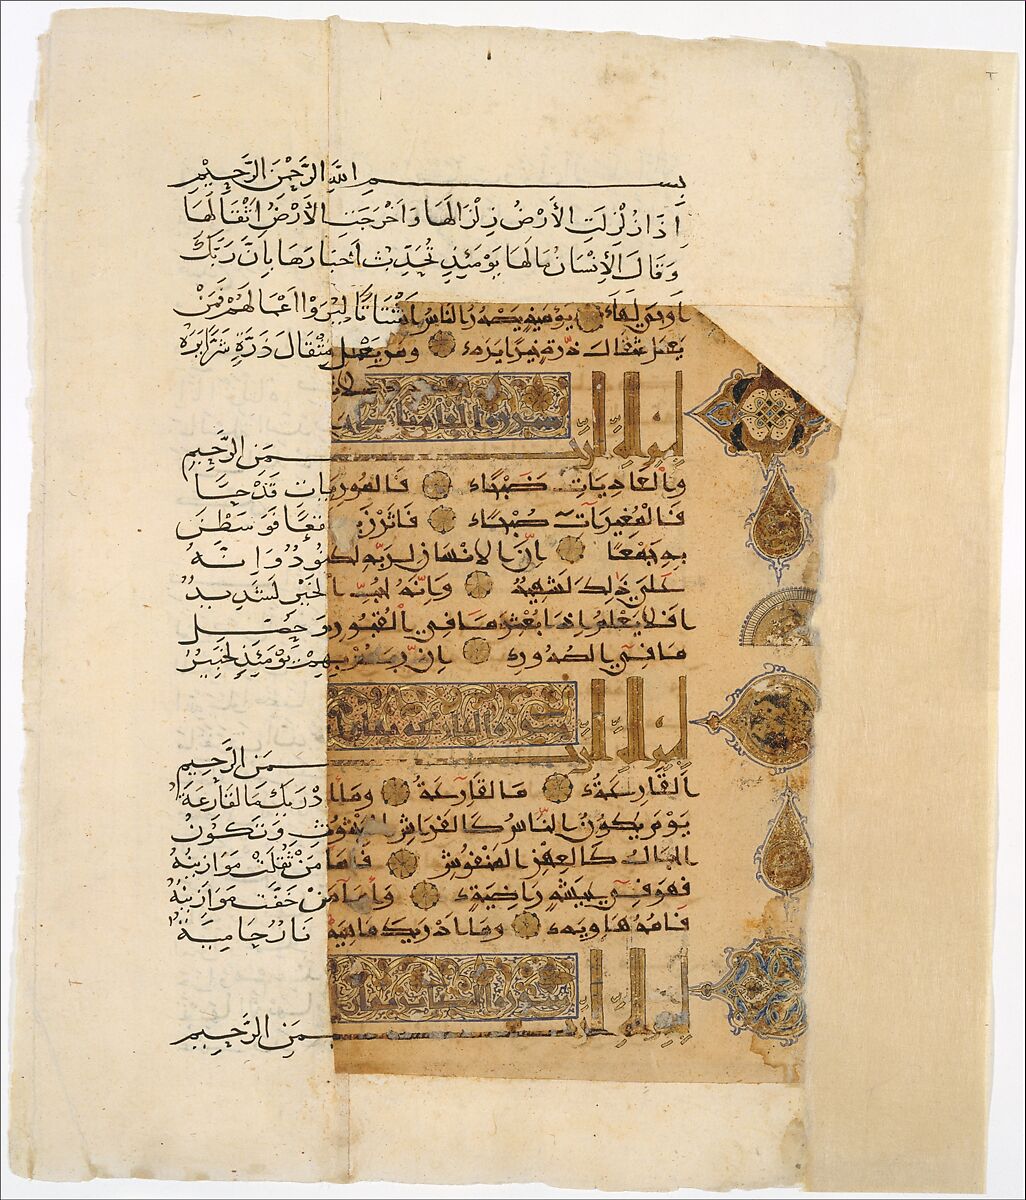 بسم الله الرَّحْمٰنِ الرَّحِيمِ
اِذَا زُلْزِلَتِ الأَرْضُ زِلْزَالَهَا وَاَخْرَجَتِ الأَرْضُ اَثْقَالَهَا
وَقَالَ الاِنْسَانُ مَالَهَا يَوْمَئِذٍ تُحَدِّثُ أَخْبَارَهَا بِاَنَّ رَبَّكَ
اوحى لها يومئذ يصدر الناس اَشْتَاتًا لِيُرَوْا اَعْمَالَهُمْ فَمَنْ
يعمل مثقال ذرة خيرا يره ومن يعمل مِثْقَالَ ذَرَّةٍ شَرًّا يَرَهُ
بسم الله الرحمن الرَّحِيمِ
والعاديات ضبحا فالموريات قَدْحًا
فالمغيرات صبحا فاثرن نقعا فوسطن
به نقعا ان الانسان لربه لكنود وانه
على ذلك لشهيد وانه لحب الخير لشديد
افلا يعلم اذا بعثر ما في القبور وحصل
ما في الصدور ان ربهم بهم يومئذ لخبير
سورة القارعة
بسم الله الرحمن الرَّحِيمِ
القارعة ما القارعة وما ادريك ما القارعة
يوم يكون الناس كالفراش المبثوث وتكون
الجبال كالعهن المنفوش فاما من ثقلت موازينه
فهو في عيشة راضية واما من خفت موازينه
فامه هاوية وما ادريك ماهيه نار حامية
بسم الله الرحمن الرَّحِيمِ